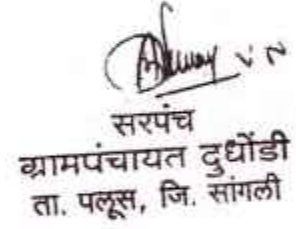 सरपंच
ग्रामपंचायत दुधोंडी
ता. पलूस, जि. सांगली